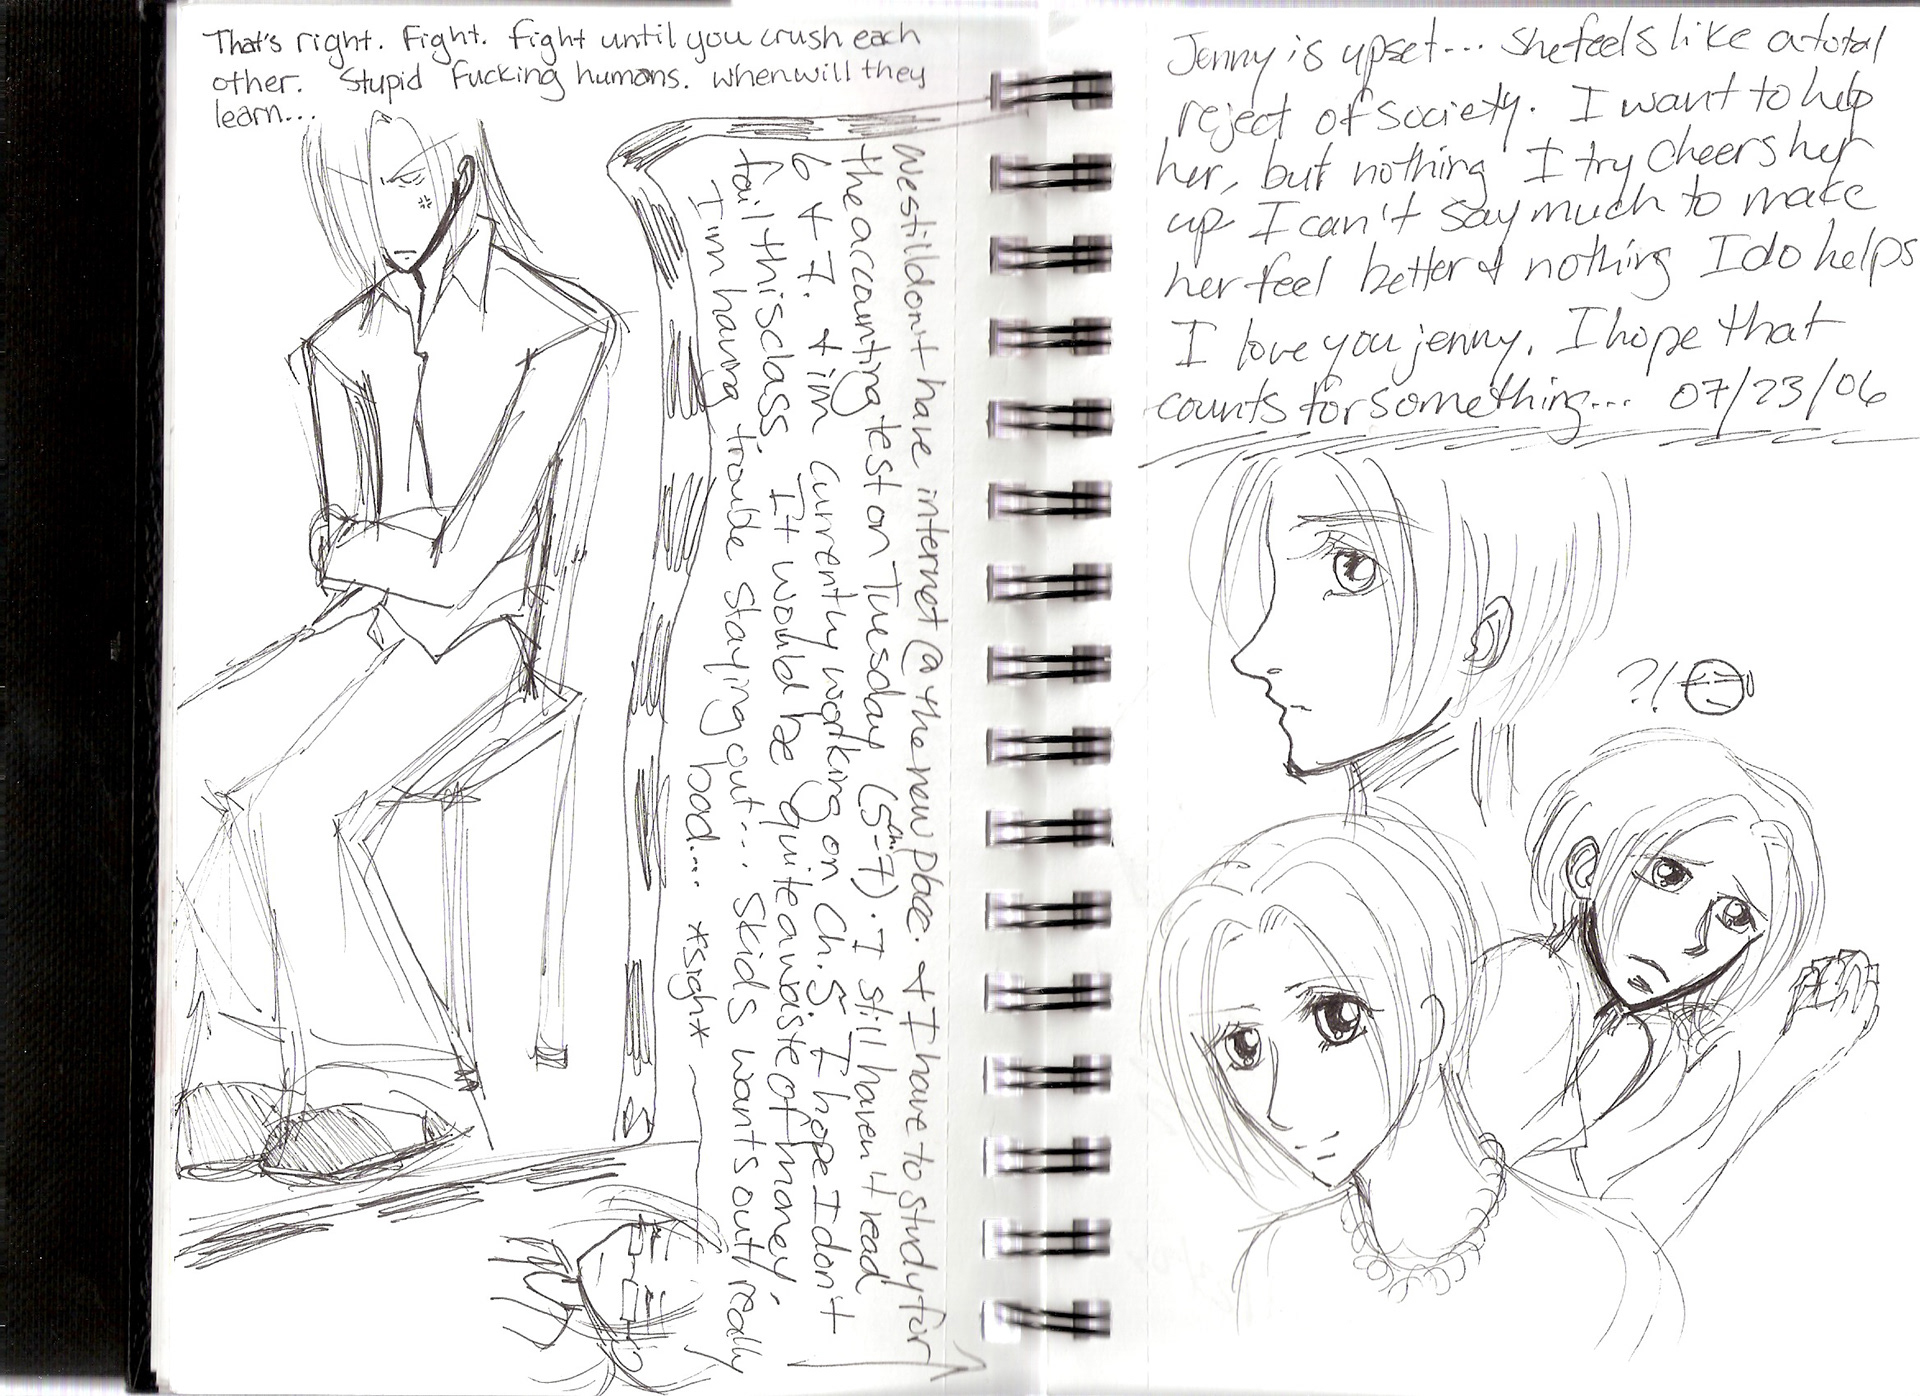 That's right. Fight. Fight until you crush each
other. Stupid Fucking humans. When will they
learn...
We still don't have internet @ the new place. & I have to study for
the accounting test on Tuesday (5-7). I still haven't read
6 & 7. & im currently working on Ch. 5. I hope I don't
fail this class. It would be quite a waiste of money.
I'm having trouble staying out... Skids wants out really
bad... *sigh*
Jenny is upset... She feels like a total
reject of society. I want to help
her, but nothing I try cheers her
up I can't say much to make
her feel better & nothing I do helps
I love you jenny. I hope that
counts for something... 07/23/06
?!